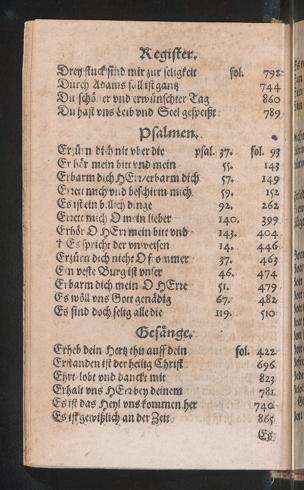 Register.
Drey stuck sind mir zur seligkeit fol. 792
Durch Adams fall ist gantz 744
Du schöner vnd erwünschter Tag 860
Du hast vns Leib vnd Seel gespeißt 789
Psalmen.
Erzürn dich nit vber die psal. 37. fol. 93
Erhör mein bitt vnd mein 55. 143
Erbarm dich HErr erbarm dich 57. 149
Erett mich vnd beschirm mich 59. 152
Es ist ein billich dinge 92. 262
Erett mich O mein lieber 140. 399
Erhör O HErr mein bitt vnd 143. 404
† Es spricht der vnweisen 14. 446
Erzürn dich nicht O frommer 37. 463
Ein veste Burg ist vnser 46. 474
Erbarm dich mein O HErre 51. 479
Es wöll vns Gott genädig 67. 482
Es sind doch selig alle die 119. 510
Gesänge.
Erheb dein Hertz thu auff dein fol. 422
Erstanden ist der heilig Christ 696
Ehrt lobt vnd danckt mit 823
Erhalt vns HErr bey deinem 781
Es ist das Heyl vns kommen her 740
Es ist gewißlich an der Zeit 865
Es